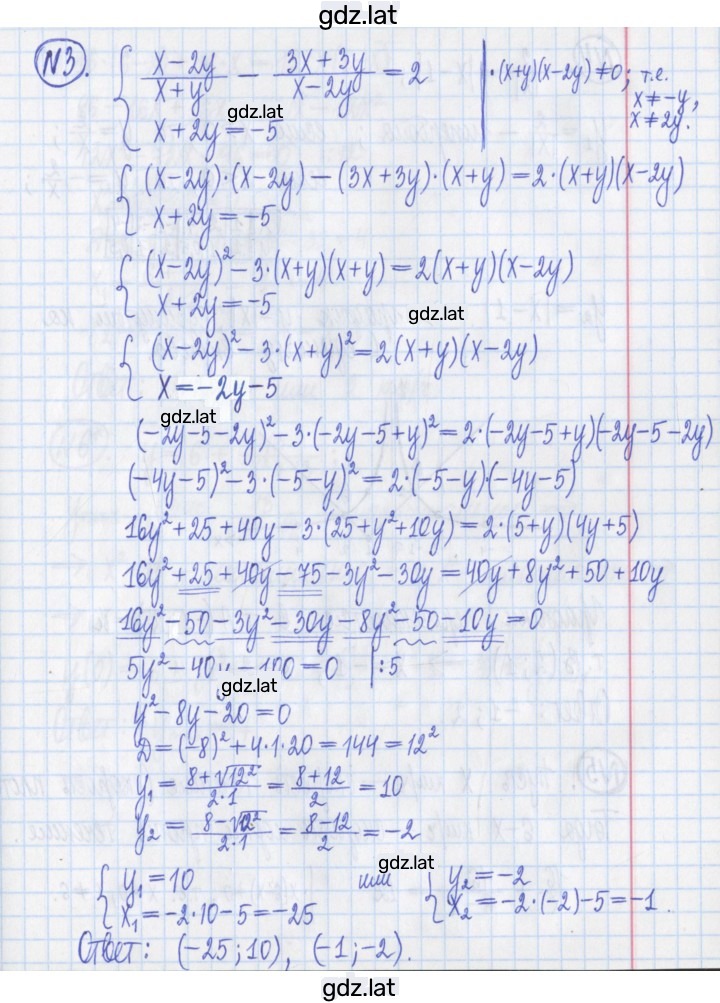 gdz.lat
№3. { (x-2y)/(x+y) - (3x+3y)/(x-2y) = 2 | ·(x+y)(x-2y) ≠ 0; т.е.
x ≠ -y,
x ≠ 2y.
gdz.lat
x + 2y = -5
{ (x-2y)·(x-2y) - (3x+3y)·(x+y) = 2·(x+y)(x-2y)
x + 2y = -5
{ (x-2y)² - 3·(x+y)(x+y) = 2(x+y)(x-2y)
x + 2y = -5
gdz.lat
{ (x-2y)² - 3·(x+y)² = 2(x+y)(x-2y)
x = -2y - 5
gdz.lat
(-2y-5-2y)² - 3·(-2y-5+y)² = 2·(-2y-5+y)(-2y-5-2y)
(-4y-5)² - 3·(-5-y)² = 2·(-5-y)·(-4y-5)
16y² + 25 + 40y - 3·(25+y²+10y) = 2·(5+y)(4y+5)
16y² + 25 + 40y - 75 - 3y² - 30y = 40y + 8y² + 50 + 10y
16y² - 50 - 3y² - 30y - 8y² - 50 - 10y = 0
5y² - 40y - 100 = 0 | :5
gdz.lat
y² - 8y - 20 = 0
D = (-8)² + 4·1·20 = 144 = 12²
y₁ = (8+√12²)/(2·1) = (8+12)/2 = 10
y₂ = (8-√12²)/(2·1) = (8-12)/2 = -2
gdz.lat
{ y₁ = 10 или { y₂ = -2
x₁ = -2·10 - 5 = -25 x₂ = -2·(-2) - 5 = -1.
Ответ: (-25; 10), (-1; -2).
gdz.lat